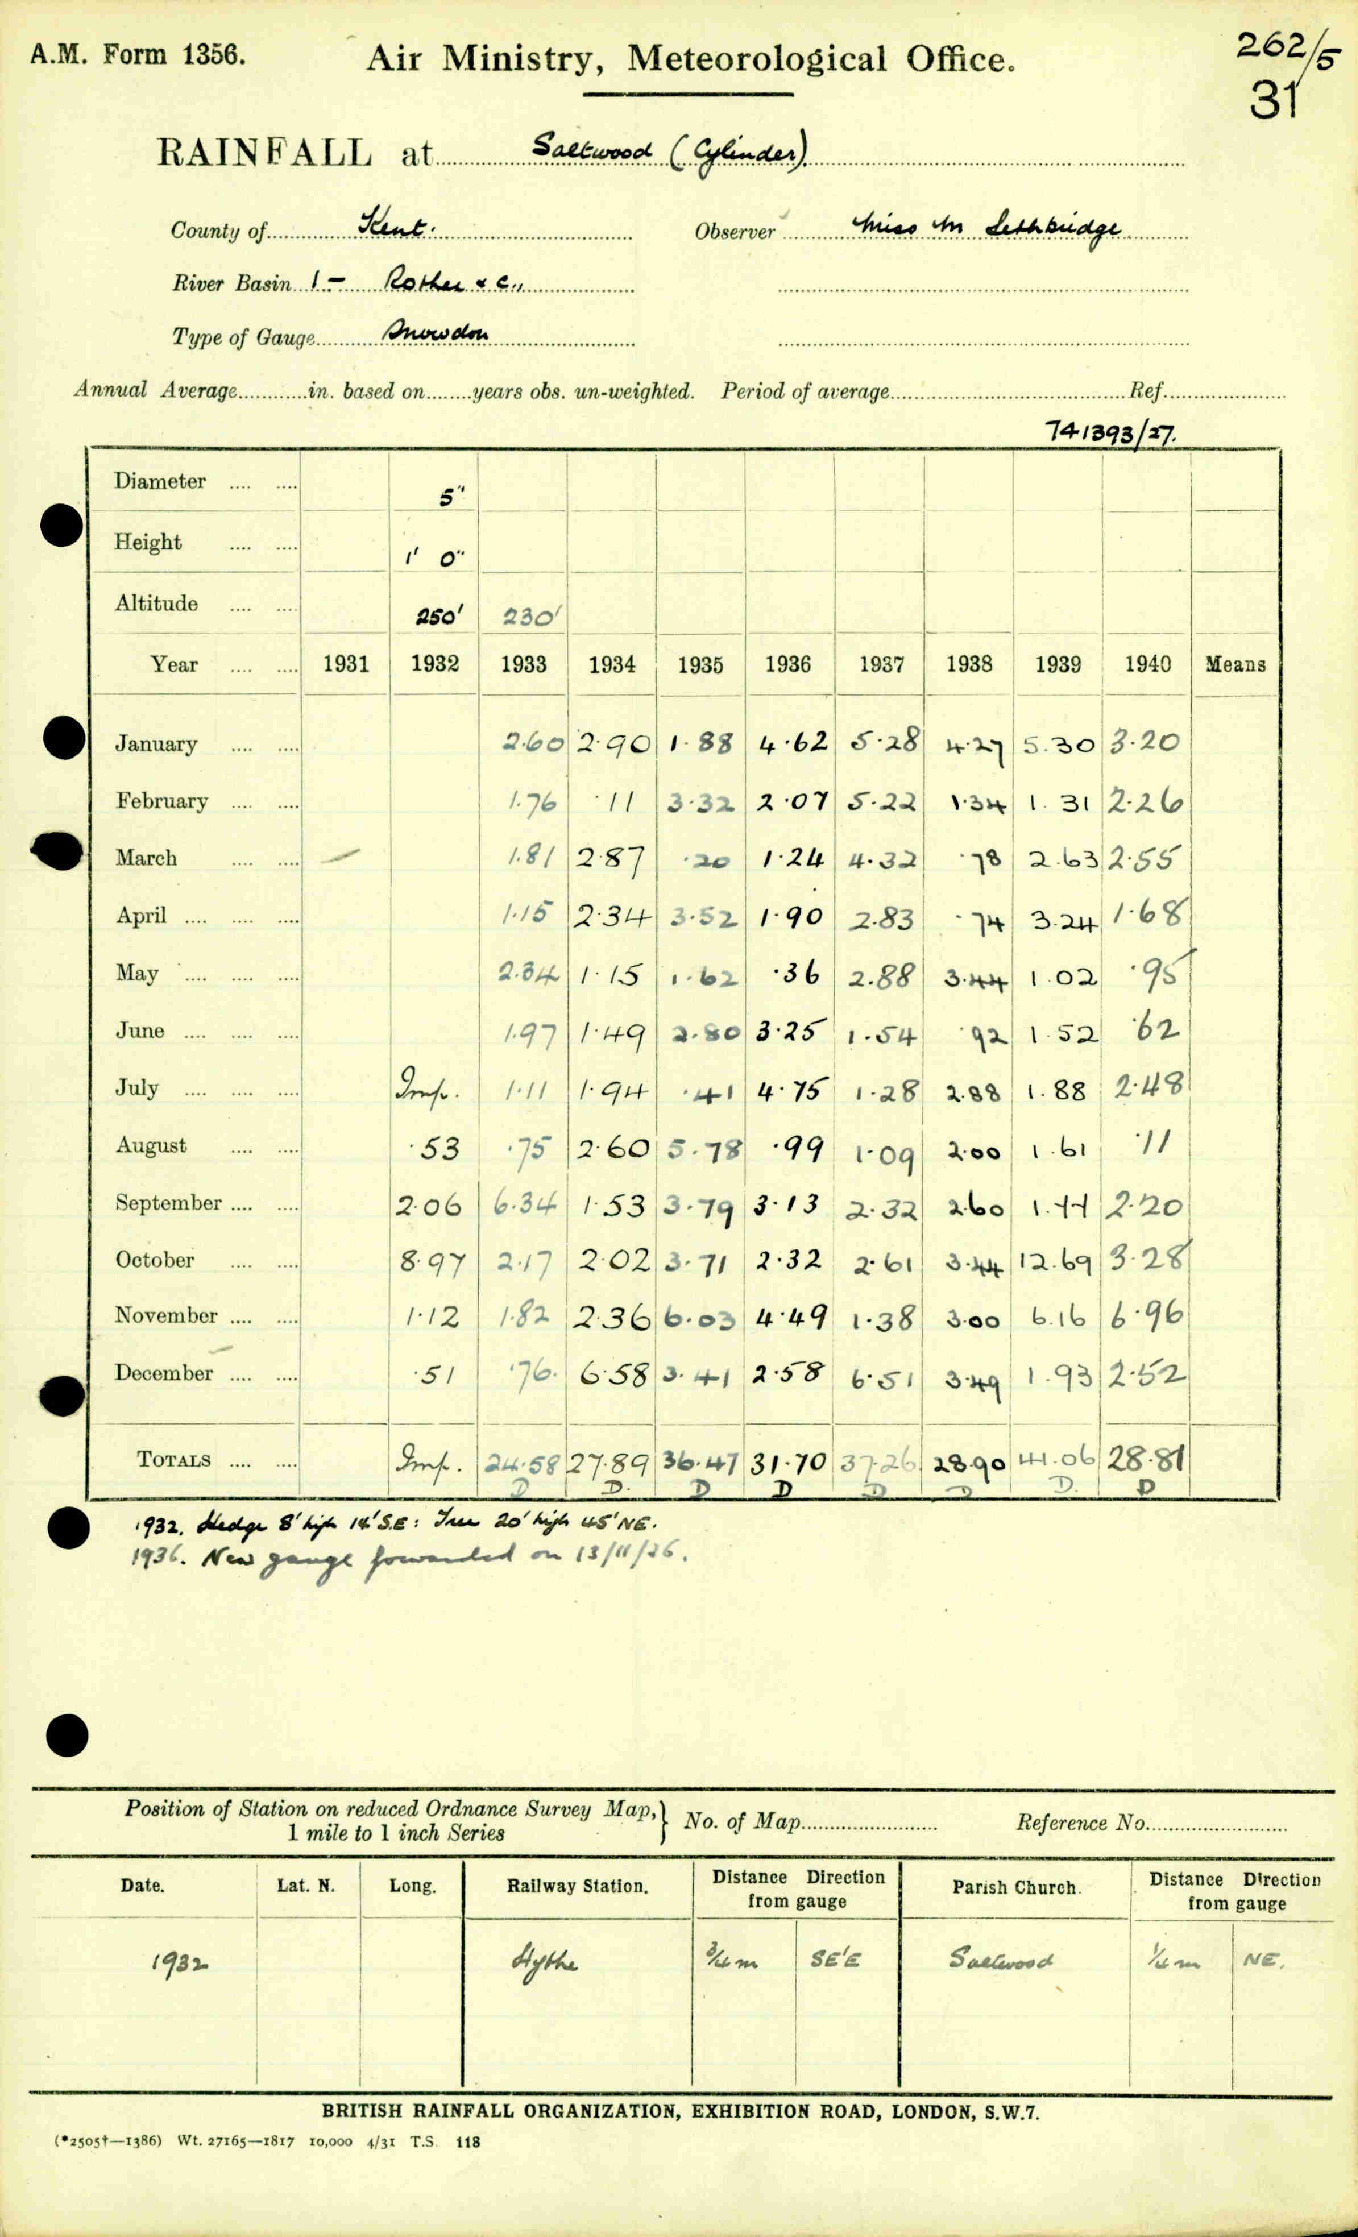 A.M. Form 1356.
Air Ministry, Meteorological Office.
262/5
31
RAINFALL at Saltwood (Cylinder)
County of Kent. Observer Miss M Lethbridge
River Basin 1 - Rother & c.,
Type of Gauge Snowdon
Annual Average in. based on years obs. un-weighted. Period of average Ref.
741393/27.
Diameter 5"
Height 1' 0"
Altitude 250' 230'
Year 1931 1932 1933 1934 1935 1936 1937 1938 1939 1940 Means
January 2.60 2.90 1.88 4.62 5.28 4.27 5.30 3.20
February 1.76 .11 3.32 2.07 5.22 1.34 1.31 2.26
March 1.81 2.87 .20 1.24 4.32 .78 2.63 2.55
April 1.15 2.34 3.52 1.90 2.83 .74 3.24 1.68
May 2.34 1.15 1.62 .36 2.88 3.44 1.02 .95
June 1.97 1.49 2.80 3.25 1.54 .92 1.52 .62
July Imp. 1.11 1.94 .41 4.75 1.28 2.88 1.88 2.48
August .53 .75 2.60 5.78 .99 1.09 2.00 1.61 .11
September 2.06 6.34 1.53 3.79 3.13 2.32 2.60 1.77 2.20
October 8.97 2.17 2.02 3.71 2.32 2.61 3.44 12.69 3.28
November 1.12 1.82 2.36 6.03 4.49 1.38 3.00 6.16 6.96
December .51 .76 6.58 3.41 2.58 6.51 3.49 1.93 2.52
TOTALS Imp. 24.58 27.89 36.47 31.70 37.26 28.90 41.06 28.81
D D. D D D D D. D
1932. Hedge 8' high 14' S.E: Tree 20' high 45' NE.
1936. New gauge forwarded on 13/11/36.
Position of Station on reduced Ordnance Survey Map, 1 mile to 1 inch Series } No. of Map Reference No.
Date. Lat. N. Long. Railway Station. Distance Direction from gauge Parish Church. Distance Direction from gauge
1932 Hythe ¾ m SE'E Saltwood ¼ m NE.
BRITISH RAINFALL ORGANIZATION, EXHIBITION ROAD, LONDON, S.W.7.
(*2505†—1386) Wt. 27165—1817 10,000 4/31 T.S. 118